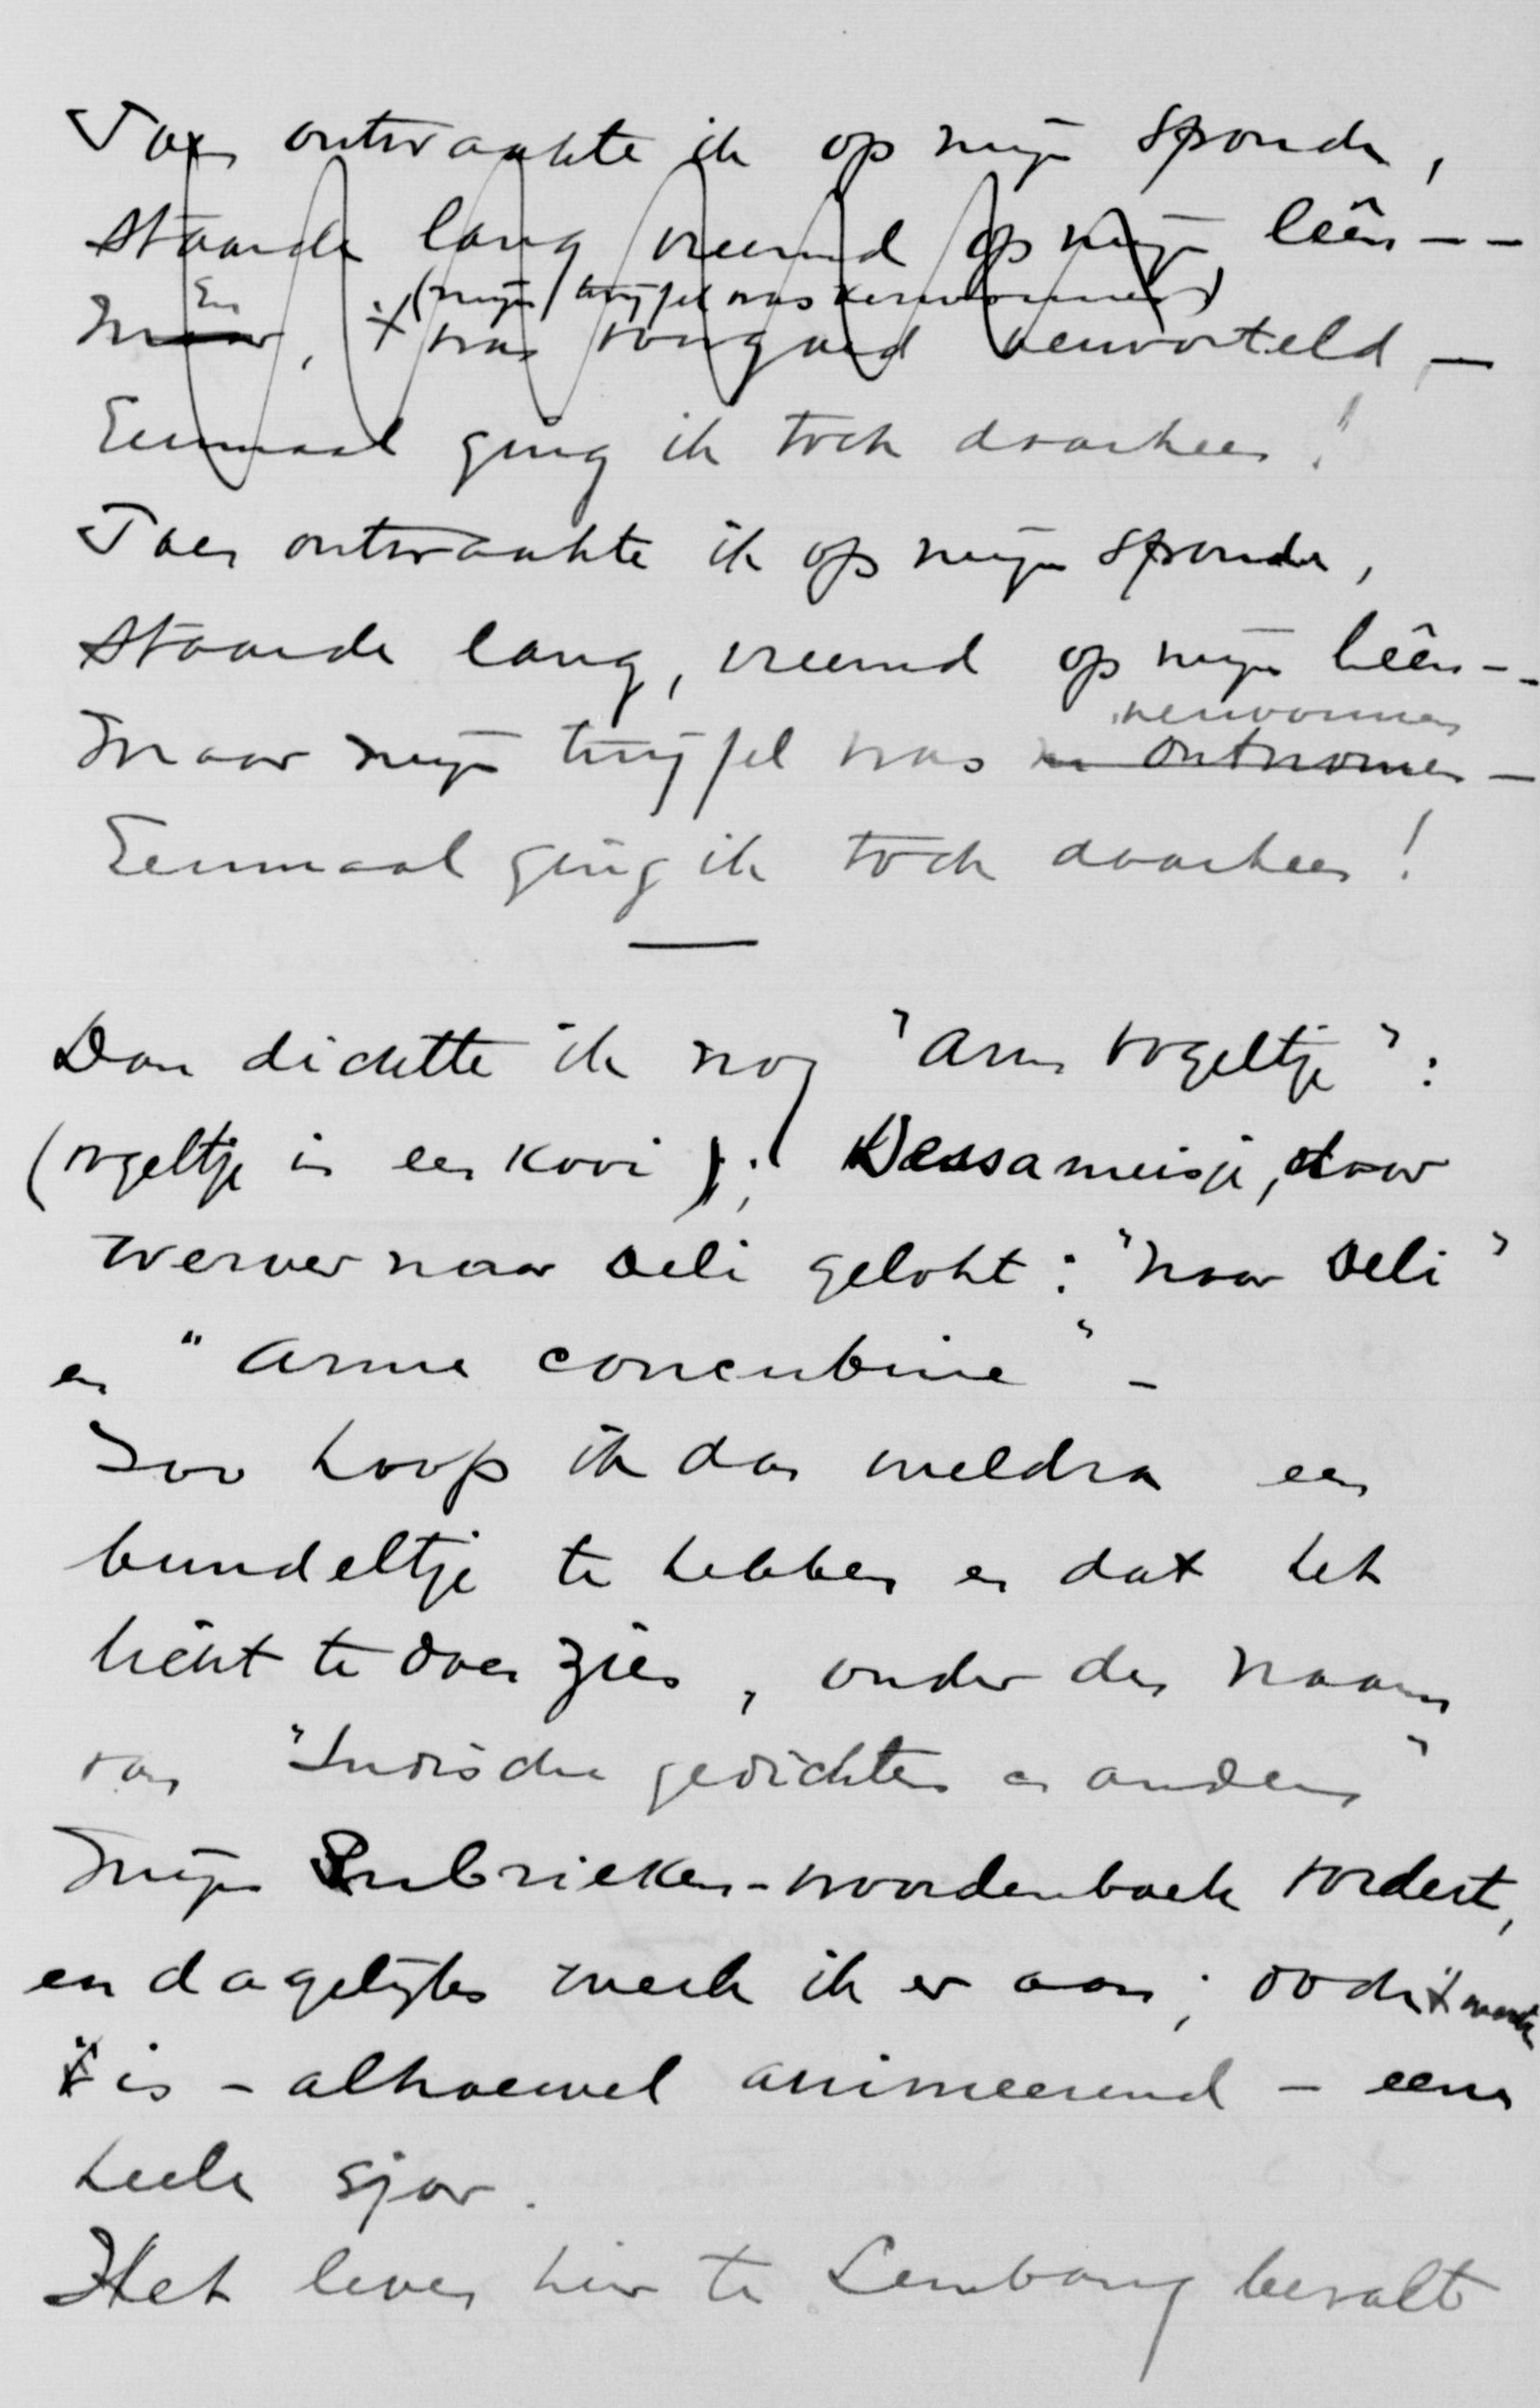 Toen ontwaakte ik op mijn sponde,
staarde lang vreemd op mijn leên--
En (mijn twijfel was verwonnen)
Maar, 't was voorgoed verworteld —
Eenmaal ging ik toch daarheen!
Toen ontwaakte ik op mijn sponde,
staarde lang, vreemd op mijn leên--
verwonnen
Maar mijn twijfel was ontnomen —
Eenmaal ging ik toch daarheen!
Dan dichtte ik nog "Arm vogeltje":
(vogeltje in een kooi); Dessameisje, door
werver naar Deli gelokt: "Naar Deli"
en "Arme concubine" -
Zoo hoop ik dan weldra een
bundeltje te hebben en dat het
licht te doen zien, onder den naam
van "Indische gedichten en andere"
Mijn Rubrieken-woordenboek vordert,
en dagelijks werk ik er aan; ook dit werk
is - alhoewel animeerend - een
heele sjow.
Het leven hier te Lembang bevalt